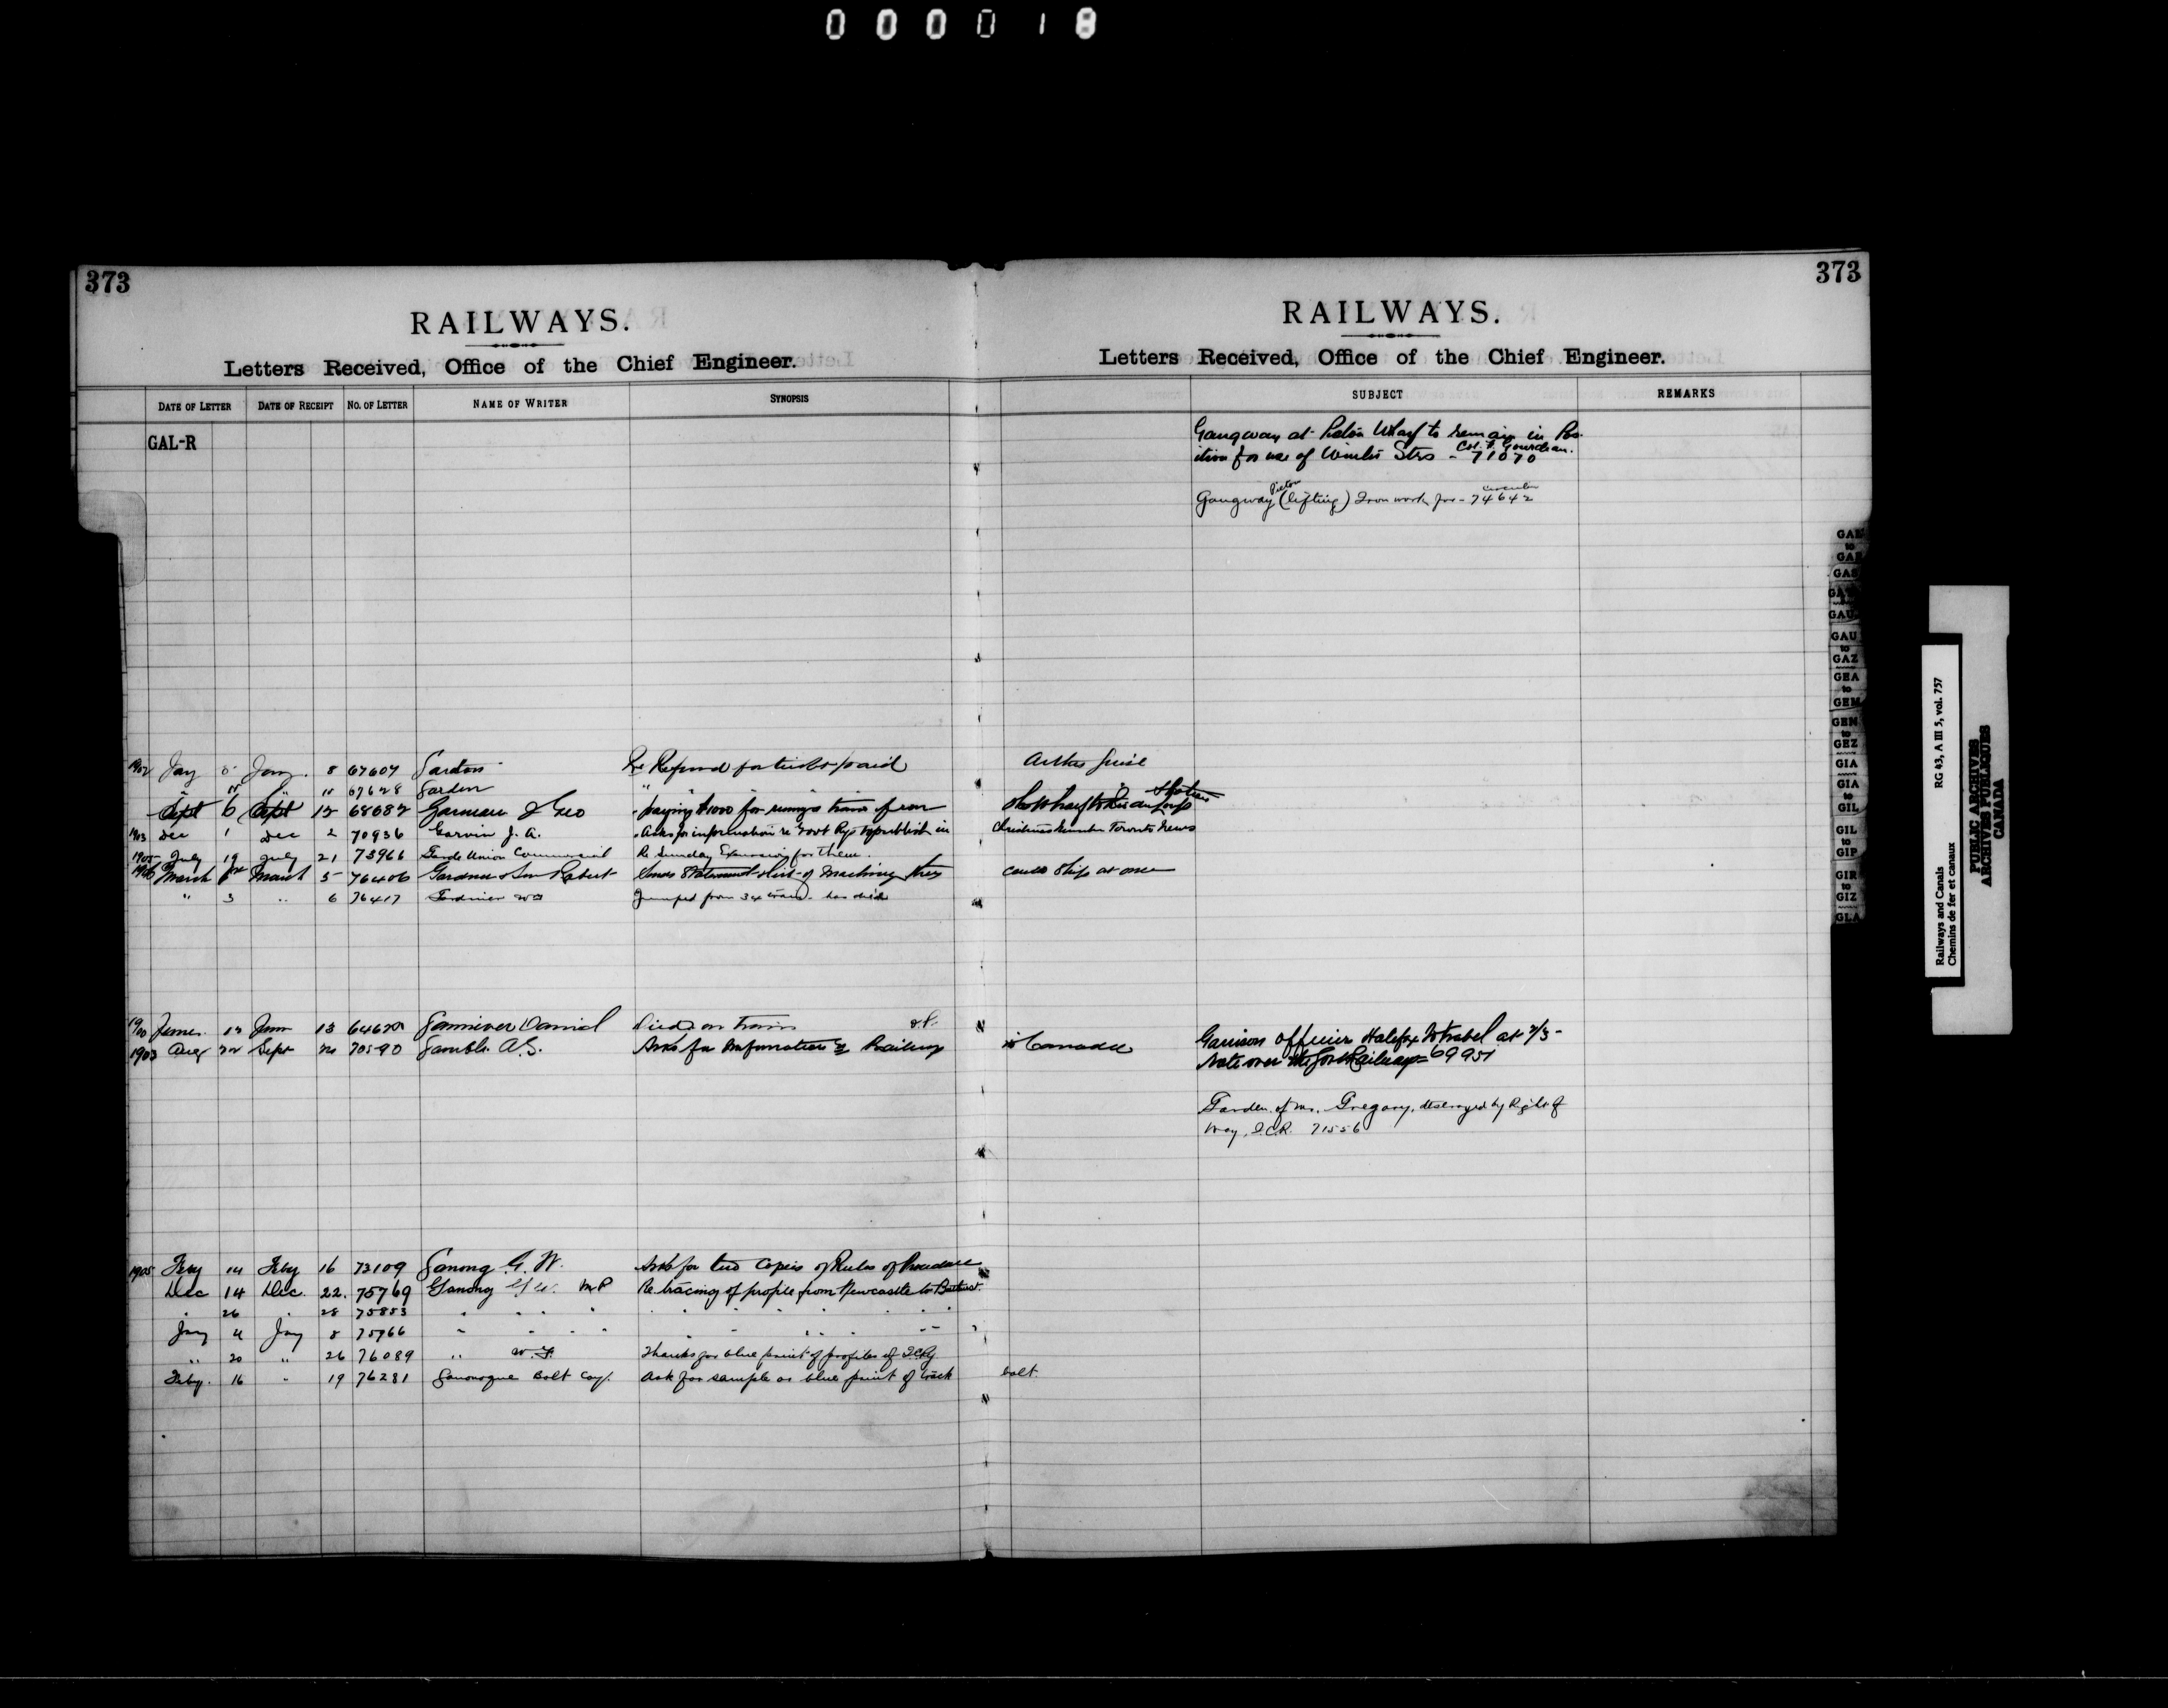 000018
373
RAILWAYS.
Letters Received, Office of the Chief Engineer.
DATE OF LETTER DATE OF RECEIPT NO. OF LETTER NAME OF WRITER SYNOPSIS
GAL-R
1902 Jay 5 Jany. 8 67607 Garton Re Refund for ticket paid
" " 11 67628 Garden "
Sept 6 Sept 12 68682 Garneau J Geo paying $1000 for running trains from
1903 Dec 1 Dec 2 70936 Garvin J. A. Asks for information re Govt Rys to publish in
1905 July 19 July 21 73966 Garde Union Commercial Re Sunday Excursion for them.
1906 March 1st March 5 76406 Gardner & Son Robert Sends Statement & list of machinery they
" 3 " 6 76417 Gardiner Wm Jumped from 34 train. has died
1900 June 12 June 13 64620 Ganniver Daniel Died on train
1903 Aug 22 Sept 70590 Gamble A.G. Asks for information re Railway
1905 Feby 14 Feby 16 72109 Ganong G. W. Asks for two copies of Rules of Procedure
Dec 14 Dec. 22. 75769 Ganong G. W. M.P Re tracing of profile from Newcastle to Bathurst.
" 26 " 28 75853 " " " "
Jay 4 Jay 8 75966 " " " "
" 20 " 26 76089 " W. F. Thanks for blue print of profiles of I.C.Ry
Feby. 16 " 19 76281 Gananoque Bolt Coy. Ask for sample or blue print of track
373
RAILWAYS.
Letters Received, Office of the Chief Engineer.
SUBJECT REMARKS
Gangway at Pictou Wharf to remain in Pos-
ition for use of Winter Strs - Col. F. Gourdeau. 71070
Gangway Pictou (lifting) Iron work for - 74642
Christmas Number Toronto News
could ship at once
in Canada
Garrison officers Halifax to travel at 2/3-
rate over the Govt Railways= 69951
Garden of Mr. Gregory, destroyed by Right of
Way, I.C.R. 71556
bolt.
GAU
to
GAZ
GEA
to
GEM
GEN
to
GEZ
GIA
GIA
to
GIL
GIL
to
GIP
GIR
to
GIZ
GLA
Railways and Canals RG 43, A III 5, vol. 757
Chemins de fer et canaux
PUBLIC ARCHIVES
ARCHIVES PUBLIQUES
CANADA